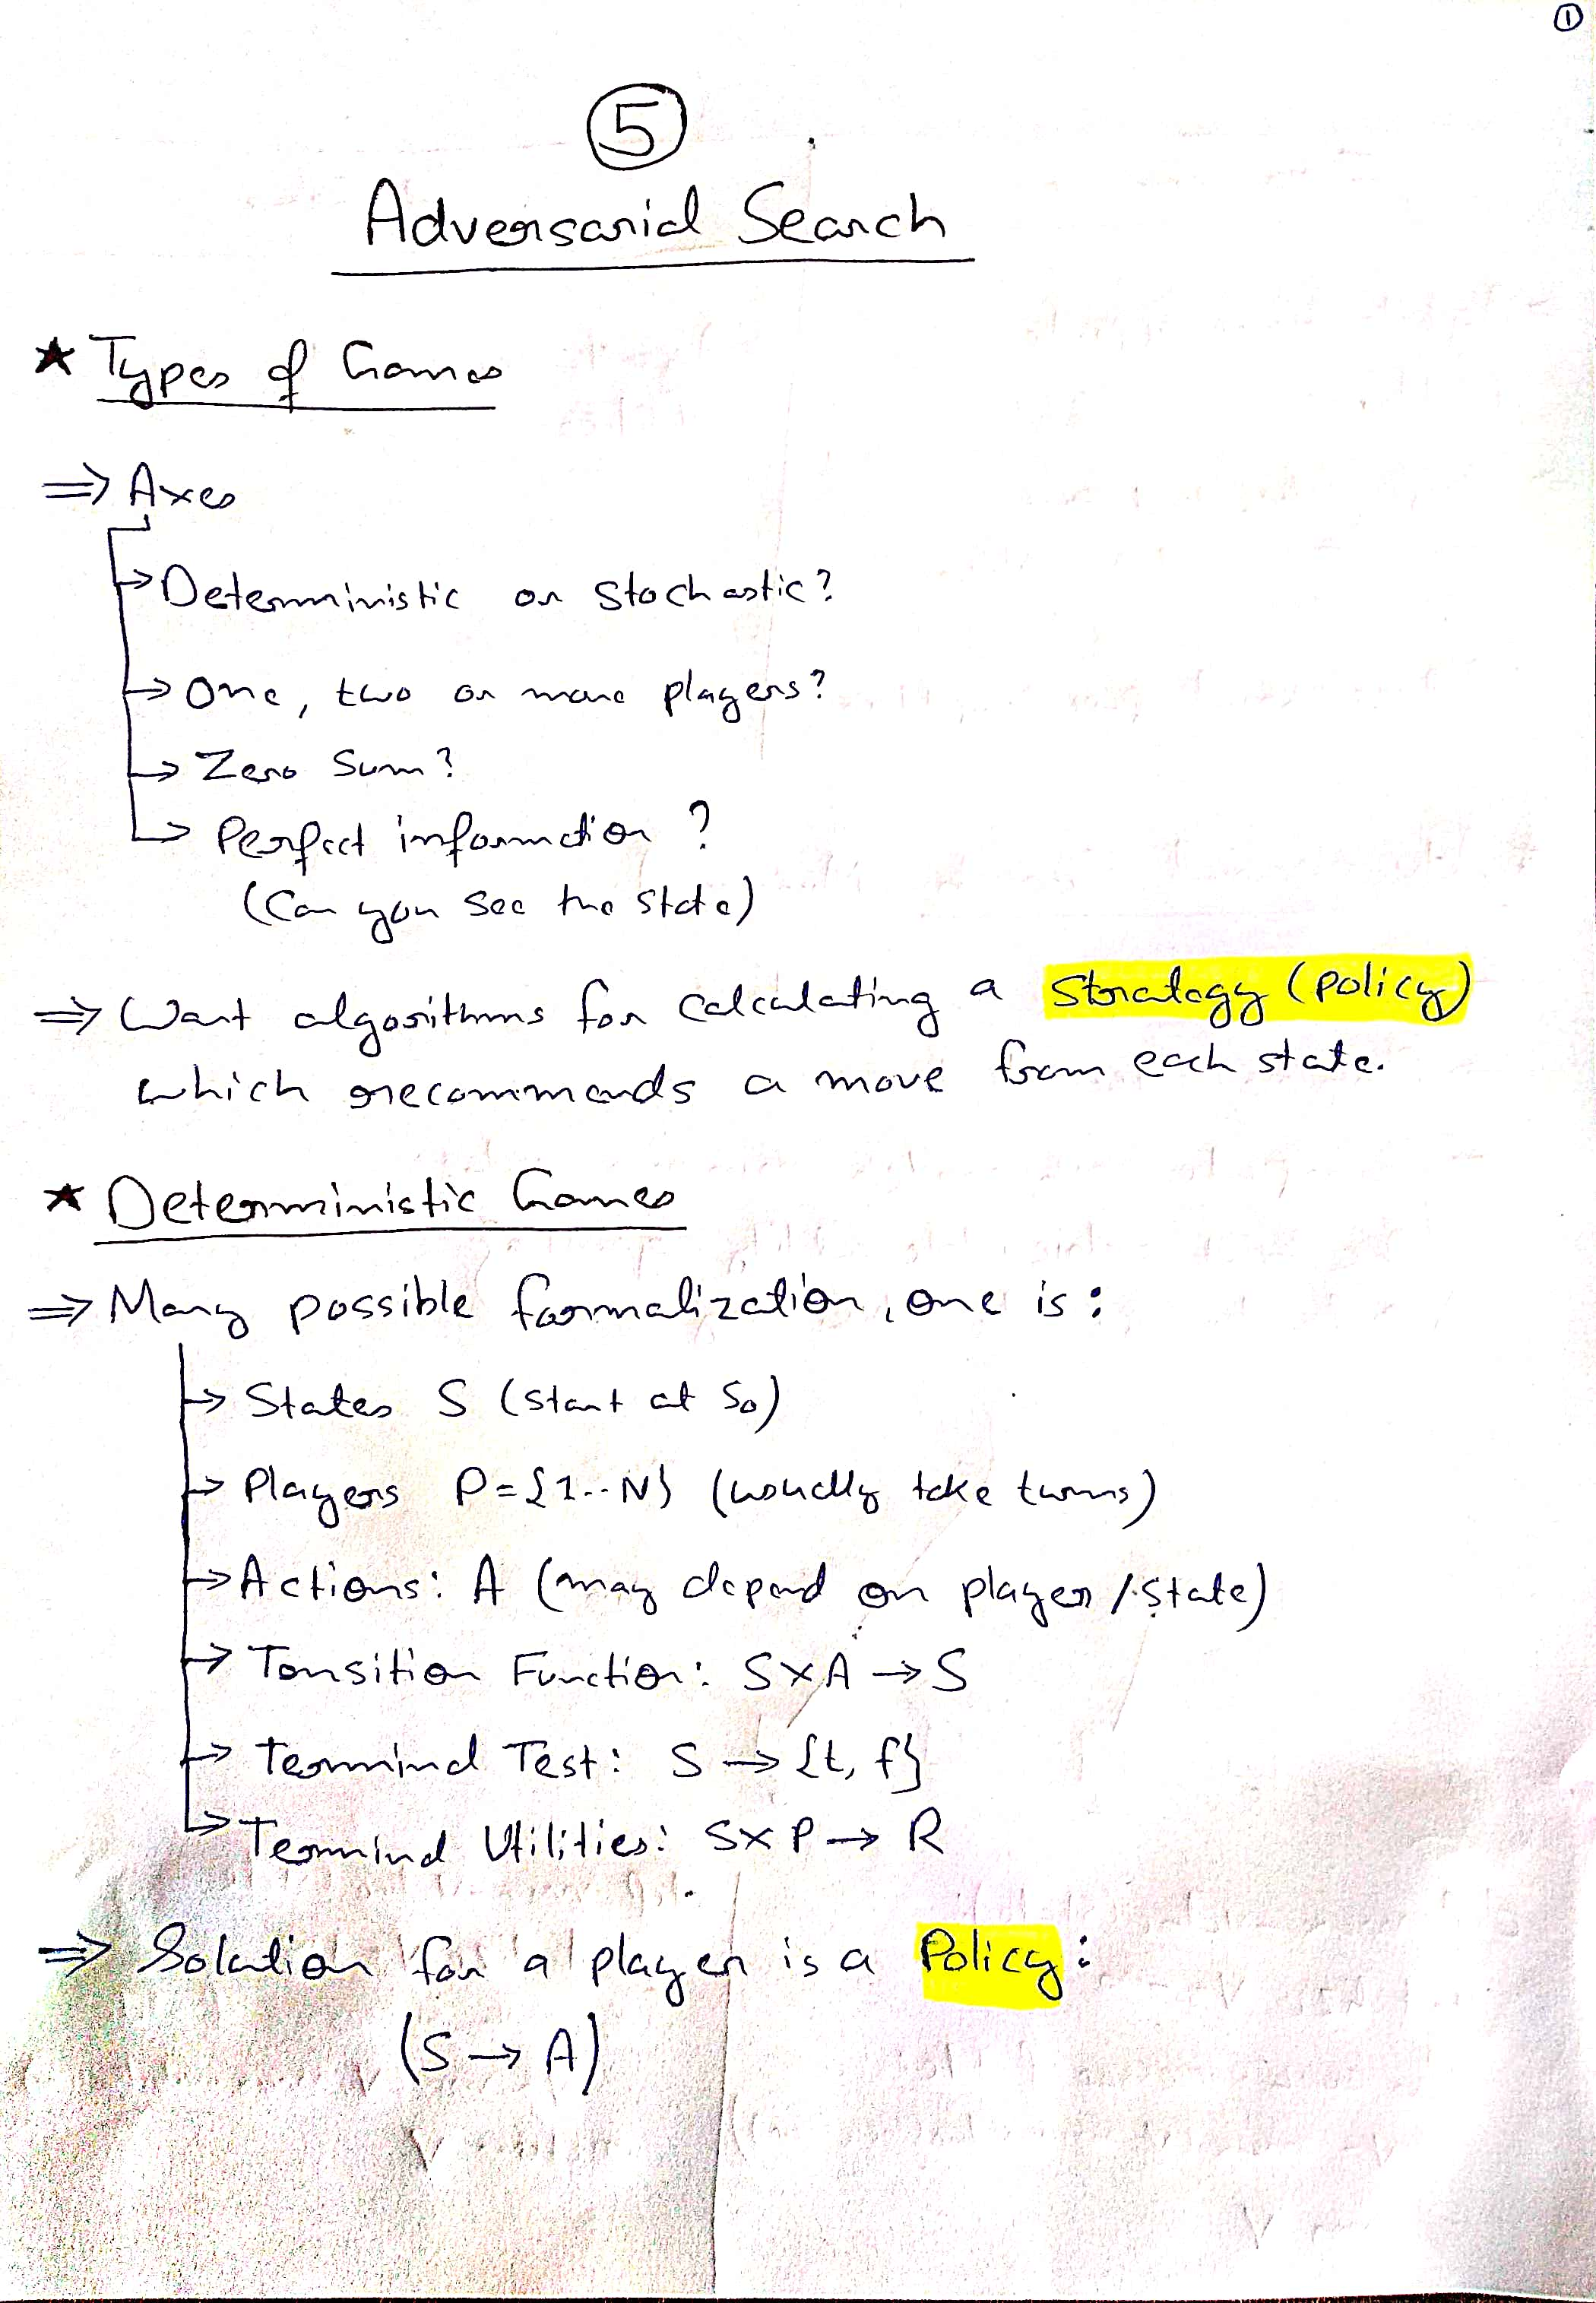 ①
⑤
Adversarial Search
★ Types of Games
⇒ Axes
→ Deterministic or Stochastic?
→ One, two or more players?
→ Zero Sum?
→ Perfect information?
(Can you see the state)
⇒ Want algorithms for calculating a Strategy (Policy)
which recommends a move from each state.
★ Deterministic Games
⇒ Many possible formalization, one is:
→ States S (start at S₀)
→ Players P={1..N} (usually take turns)
→ Actions: A (may depend on player / state)
→ Tonsition Function: S×A → S
→ Terminal Test: S → {t, f}
→ Terminal Utilities: S×P → R
⇒ Solution for a player is a Policy:
(S → A)